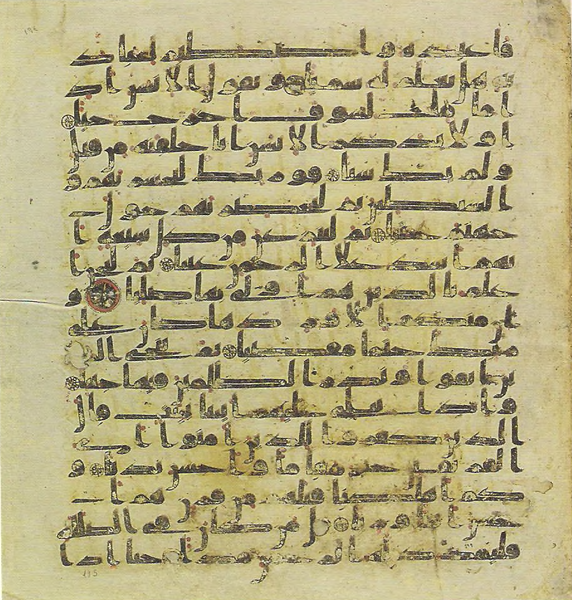 فاعبده واصطبر لعباد
ته هل تعلم له سميا ويقول الانسن ا
ذا ما مت لسوف اخرج حيا
اولا يذكر الانسن انا خلقنه من قبل
ولم يك شيا فوربك لنحشرنهم و
الشيطين ثم لنحضرنهم حول
جهنم جثيا ثم لننزعن من كل شيعة ا
يهم اشد على الرحمن عتيا ثم لنحن ا
علم بالذين هم اولى بها صليا و
ان منكم الا واردها كان على
ربك حتما مقضيا ثم ننجي الذ
ين اتقوا ونذر الظلمين فيها جثيا
واذا تتلى عليهم ايتنا بينت قال
الذين كفروا للذين امنوا اي
الفريقين خير مقاما واحسن نديا و
كم اهلكنا قبلهم من قرن هم ا
حسن اثثا وريا قل من كان في الضللة
فليمدد له الرحمن مدا حتى اذا